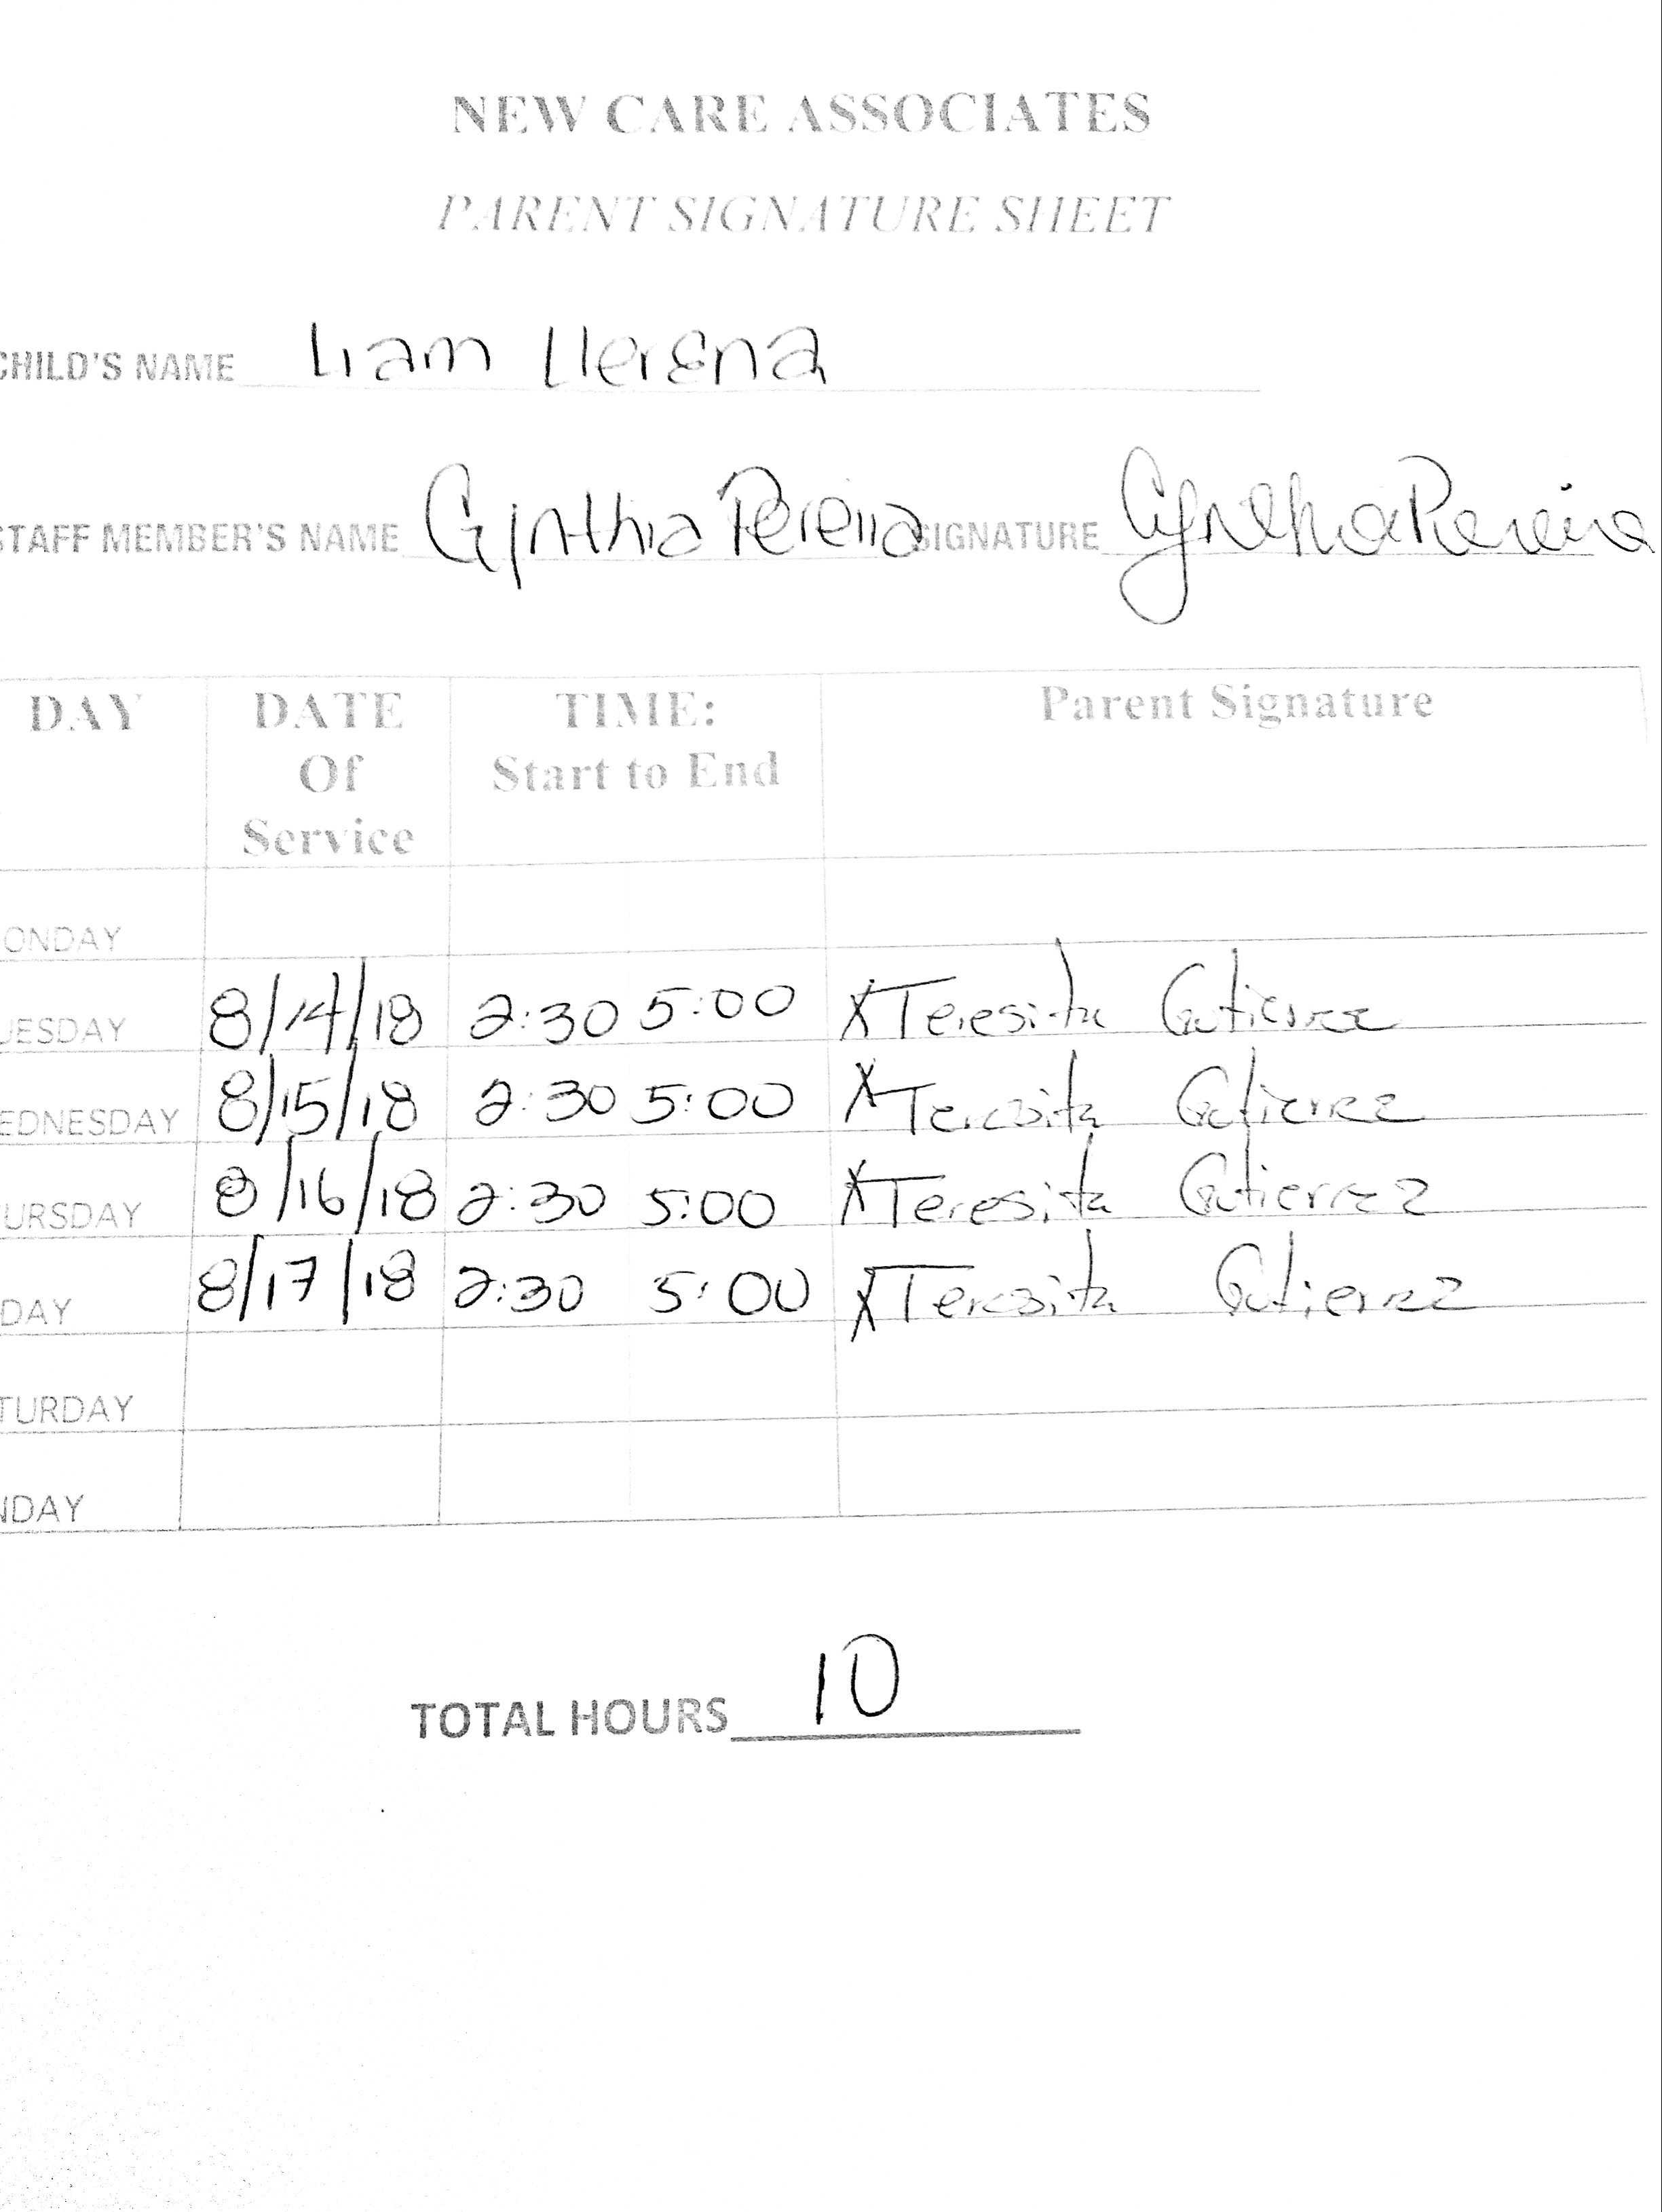 NEW CARE ASSOCIATES
PARENT SIGNATURE SHEET
CHILD'S NAME Liam Llerena
STAFF MEMBER'S NAME Cynthia Pereira SIGNATURE Cynthia Pereira
DAY DATE Of Service TIME: Start to End Parent Signature
ONDAY
UESDAY 8/14/18 2:30 5:00 X Teresita Gutierrez
EDNESDAY 8/15/18 2:30 5:00 X Teresita Gutierrez
URSDAY 8/16/18 2:30 5:00 X Teresita Gutierrez
DAY 8/17/18 2:30 5:00 X Teresita Gutierrez
TURDAY
NDAY
TOTAL HOURS 10